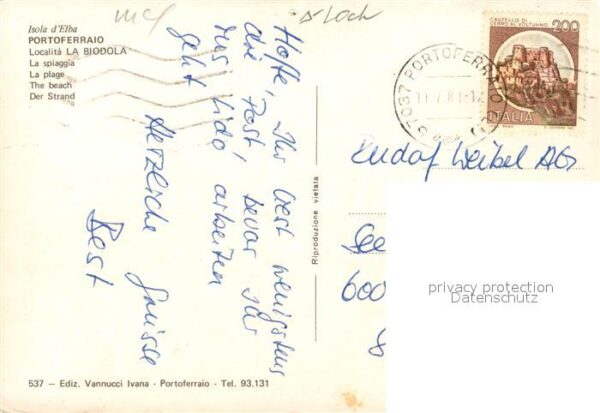 Isola d'Elba
PORTOFERRAIO
Località LA BIODOLA
La spiaggia
La plage
The beach
Der Strand
Hoffe, Ihr lest wenigstens
die Post, bevor Ihr
ins Lido arbeiten
geht
Herzliche Grüsse
Riproduzione vietata
537 - Ediz. Vannucci Ivana - Portoferraio - Tel. 93.131
CASTELLO DI
CERRO AL VOLTURNO
200
ITALIA
57037 PORTOFERRAIO
Rudolf Weibel AG
See
600
privacy protection
Datenschutz